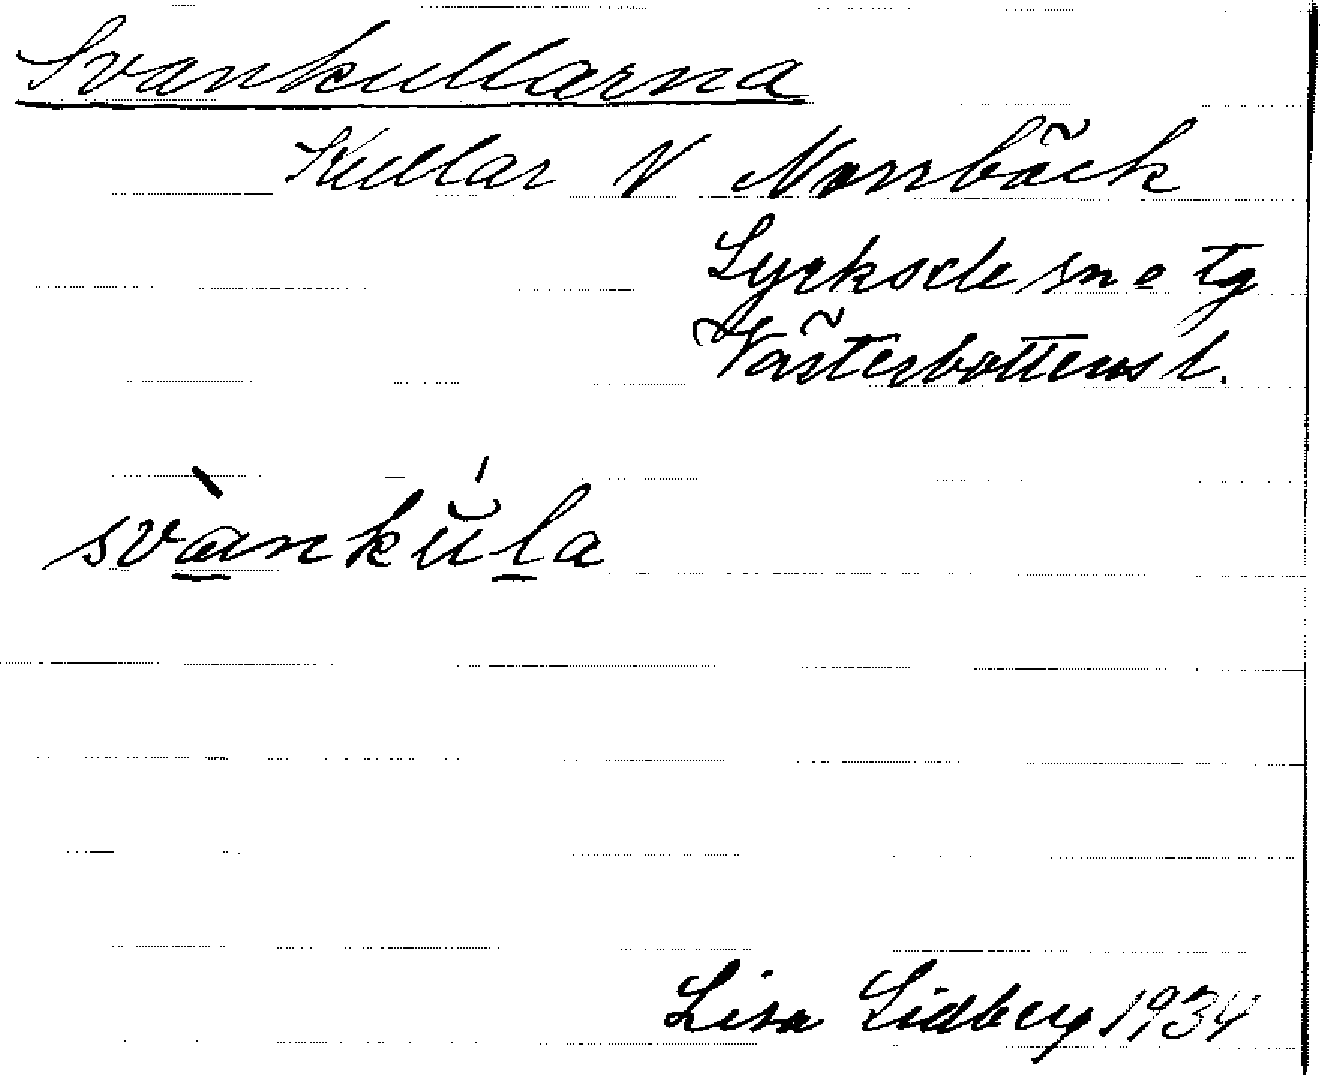 Svankullarna
Kullar V Norrbäck
Lycksele sn o tg
Västerbottens l.
svànkŭ́la
Lisa Lidberg 1934